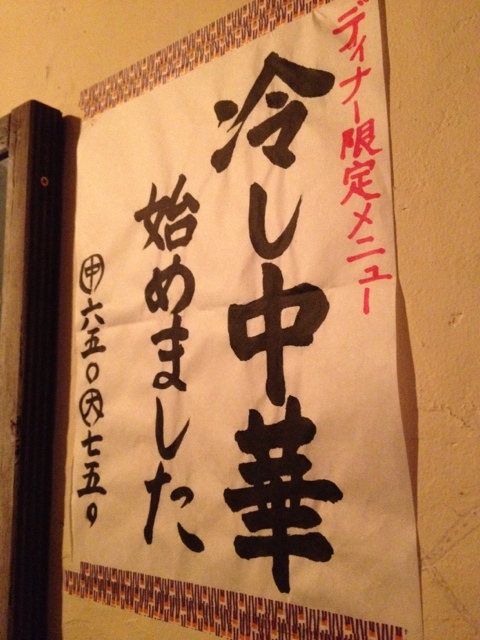 ディナー限定メニュー
冷し中華
始めました
㊥六五〇㊛七五〇